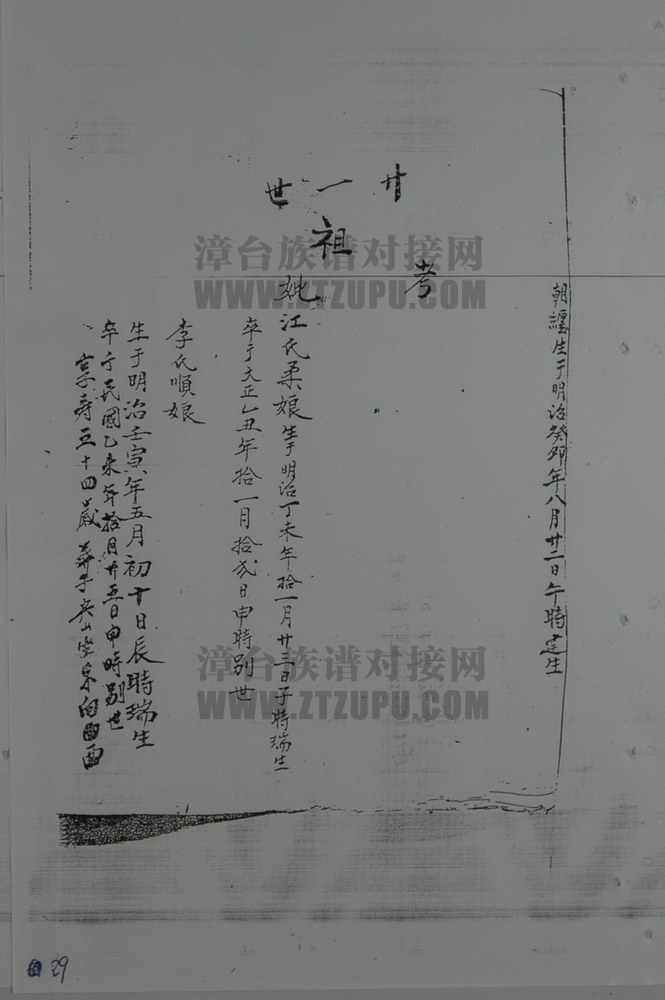 廿一世
祖
考
妣
朝纒生于明治癸卯年八月廿二日午時建生
江氏柔娘生于明治丁未年拾一月廿三日子時瑞生
卒于大正乙丑年拾一月拾弍日申時别世
李氏順娘
生于明治壬寅年五月初十日辰時瑞生
卒于民國乙未年拾月廿五日申時别世
享寿五十四歲 葬于尖山 坐东向西
漳台族谱对接网
WWW.ZTZUPU.COM
漳台族谱对接网
WWW.ZTZUPU.COM
29